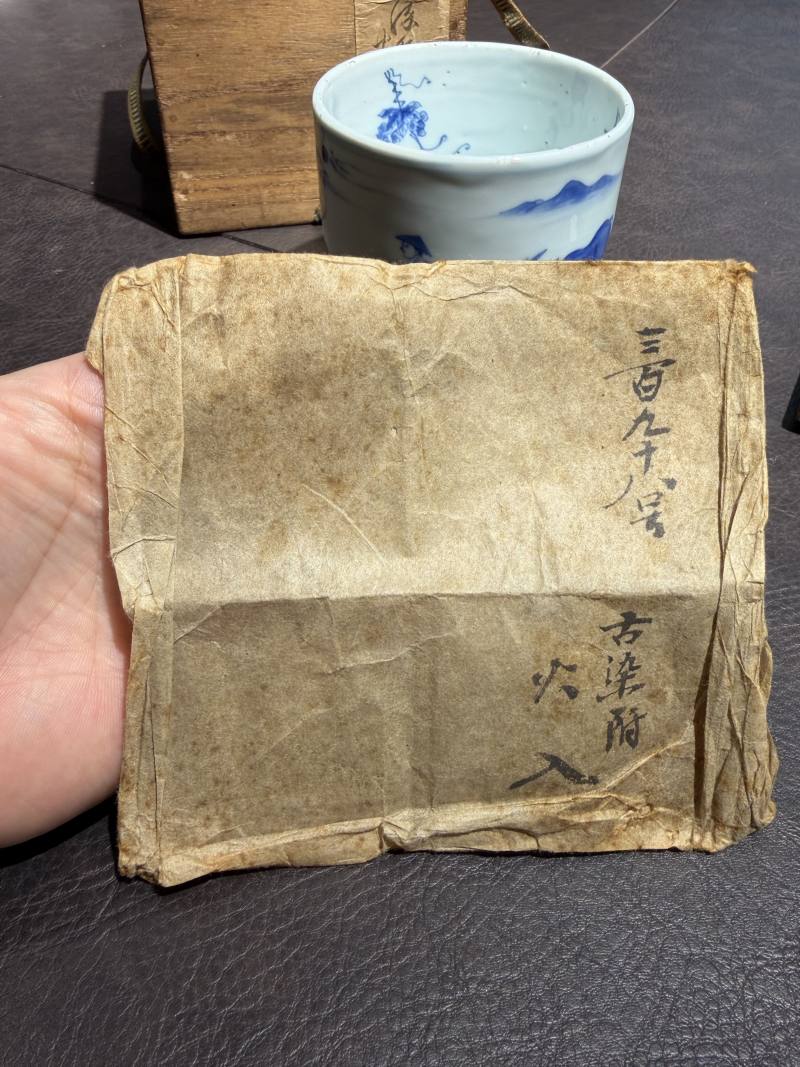 三百九十八号
古染附
火入